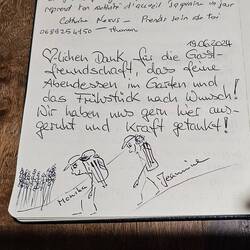 Catherine Nexus – Prends soin de toi
0689254150 – Thomson
19.06.2024
♡lichen Dank, für die Gast-
freundschaft, das feine
Abendessen im Garten und
das Frühstück nach Wunsch!
Wir haben uns gern hier aus-
geruht und Kraft getankt!
Monika
Jeannine